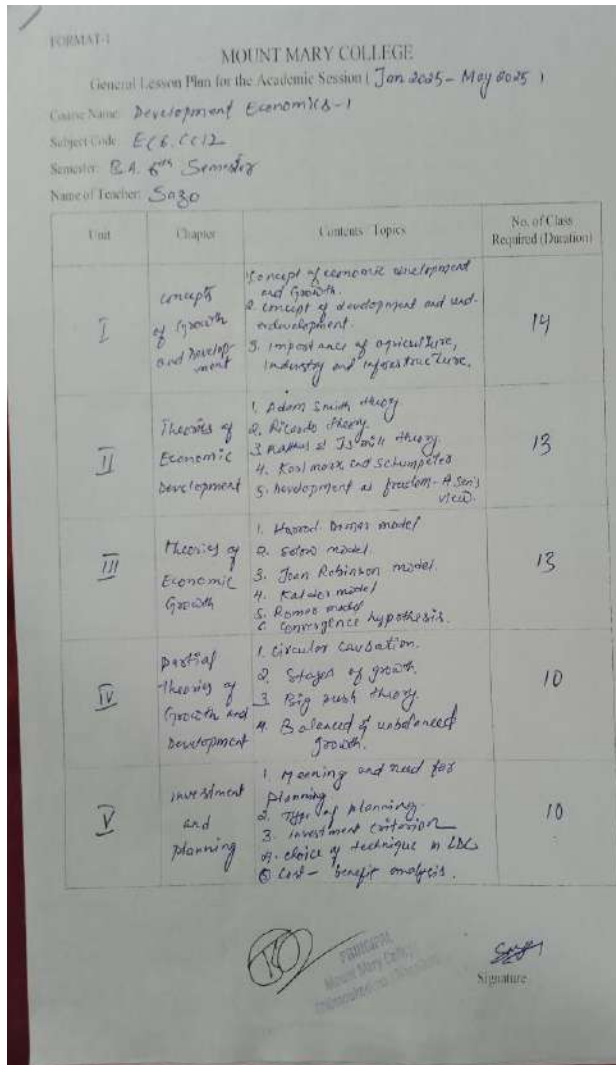 FORMAT-1
MOUNT MARY COLLEGE
General Lesson Plan for the Academic Session ( Jan 2025 - May 2025 )
Course Name: Development Economics-1
Subject Code: EC6.CC12
Semester: B.A. 6th Semester
Name of Teacher: Sazo
Unit Chapter Contents / Topics No. of Class Required (Duration)
I
concepts
of Growth
and Develop-
ment
1. Concept of economic development
and Growth.
2. concept of development and und-
erdevelopment.
3. Importance of agriculture,
Industry and infrastructure.
14
II
Theories of
Economic
Development
1. Adam Smith theory
2. Ricardo theory
3. Malthus & JS mill theory
4. Karl marx and Schumpeter
5. Development as freedom - A Sen's
view.
13
III
Theories of
Economic
Growth
1. Harrod Domar model
2. Solow model.
3. Joan Robinson model.
4. Kaldor model
5. Romer model
6. Convergence hypothesis.
13
IV
partial
theories of
Growth and
Development
1. Circular Causation.
2. Stages of growth.
3. Big push theory.
4. Balanced & unbalanced
growth.
10
V
investment
and
planning
1. Meaning and need for
planning
2. Type of planning.
3. investment criterion
4. choice of technique in LDCs
5 Cost - benefit analysis.
10
PRINCIPAL
Mount Mary College
Signature